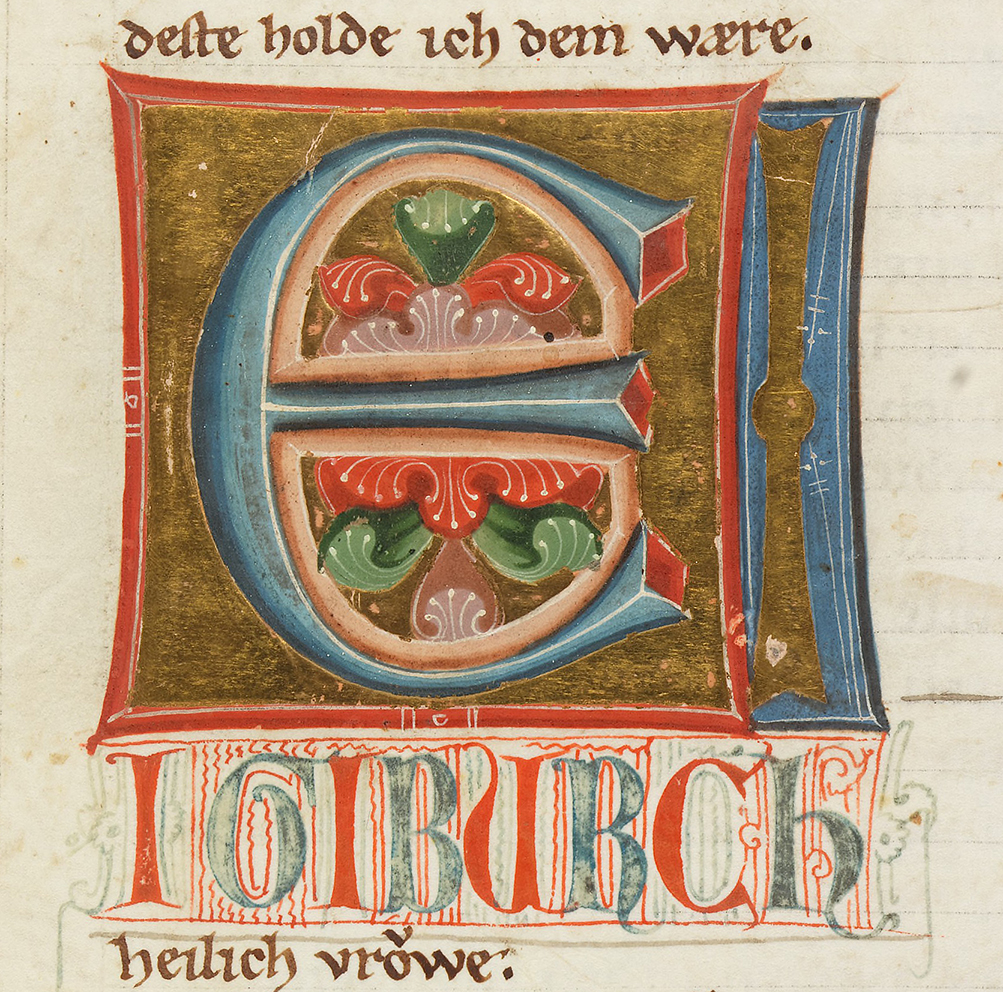 deſte holde ich dem wære.
EI
IGIBURCh
heilich vroͮwe.